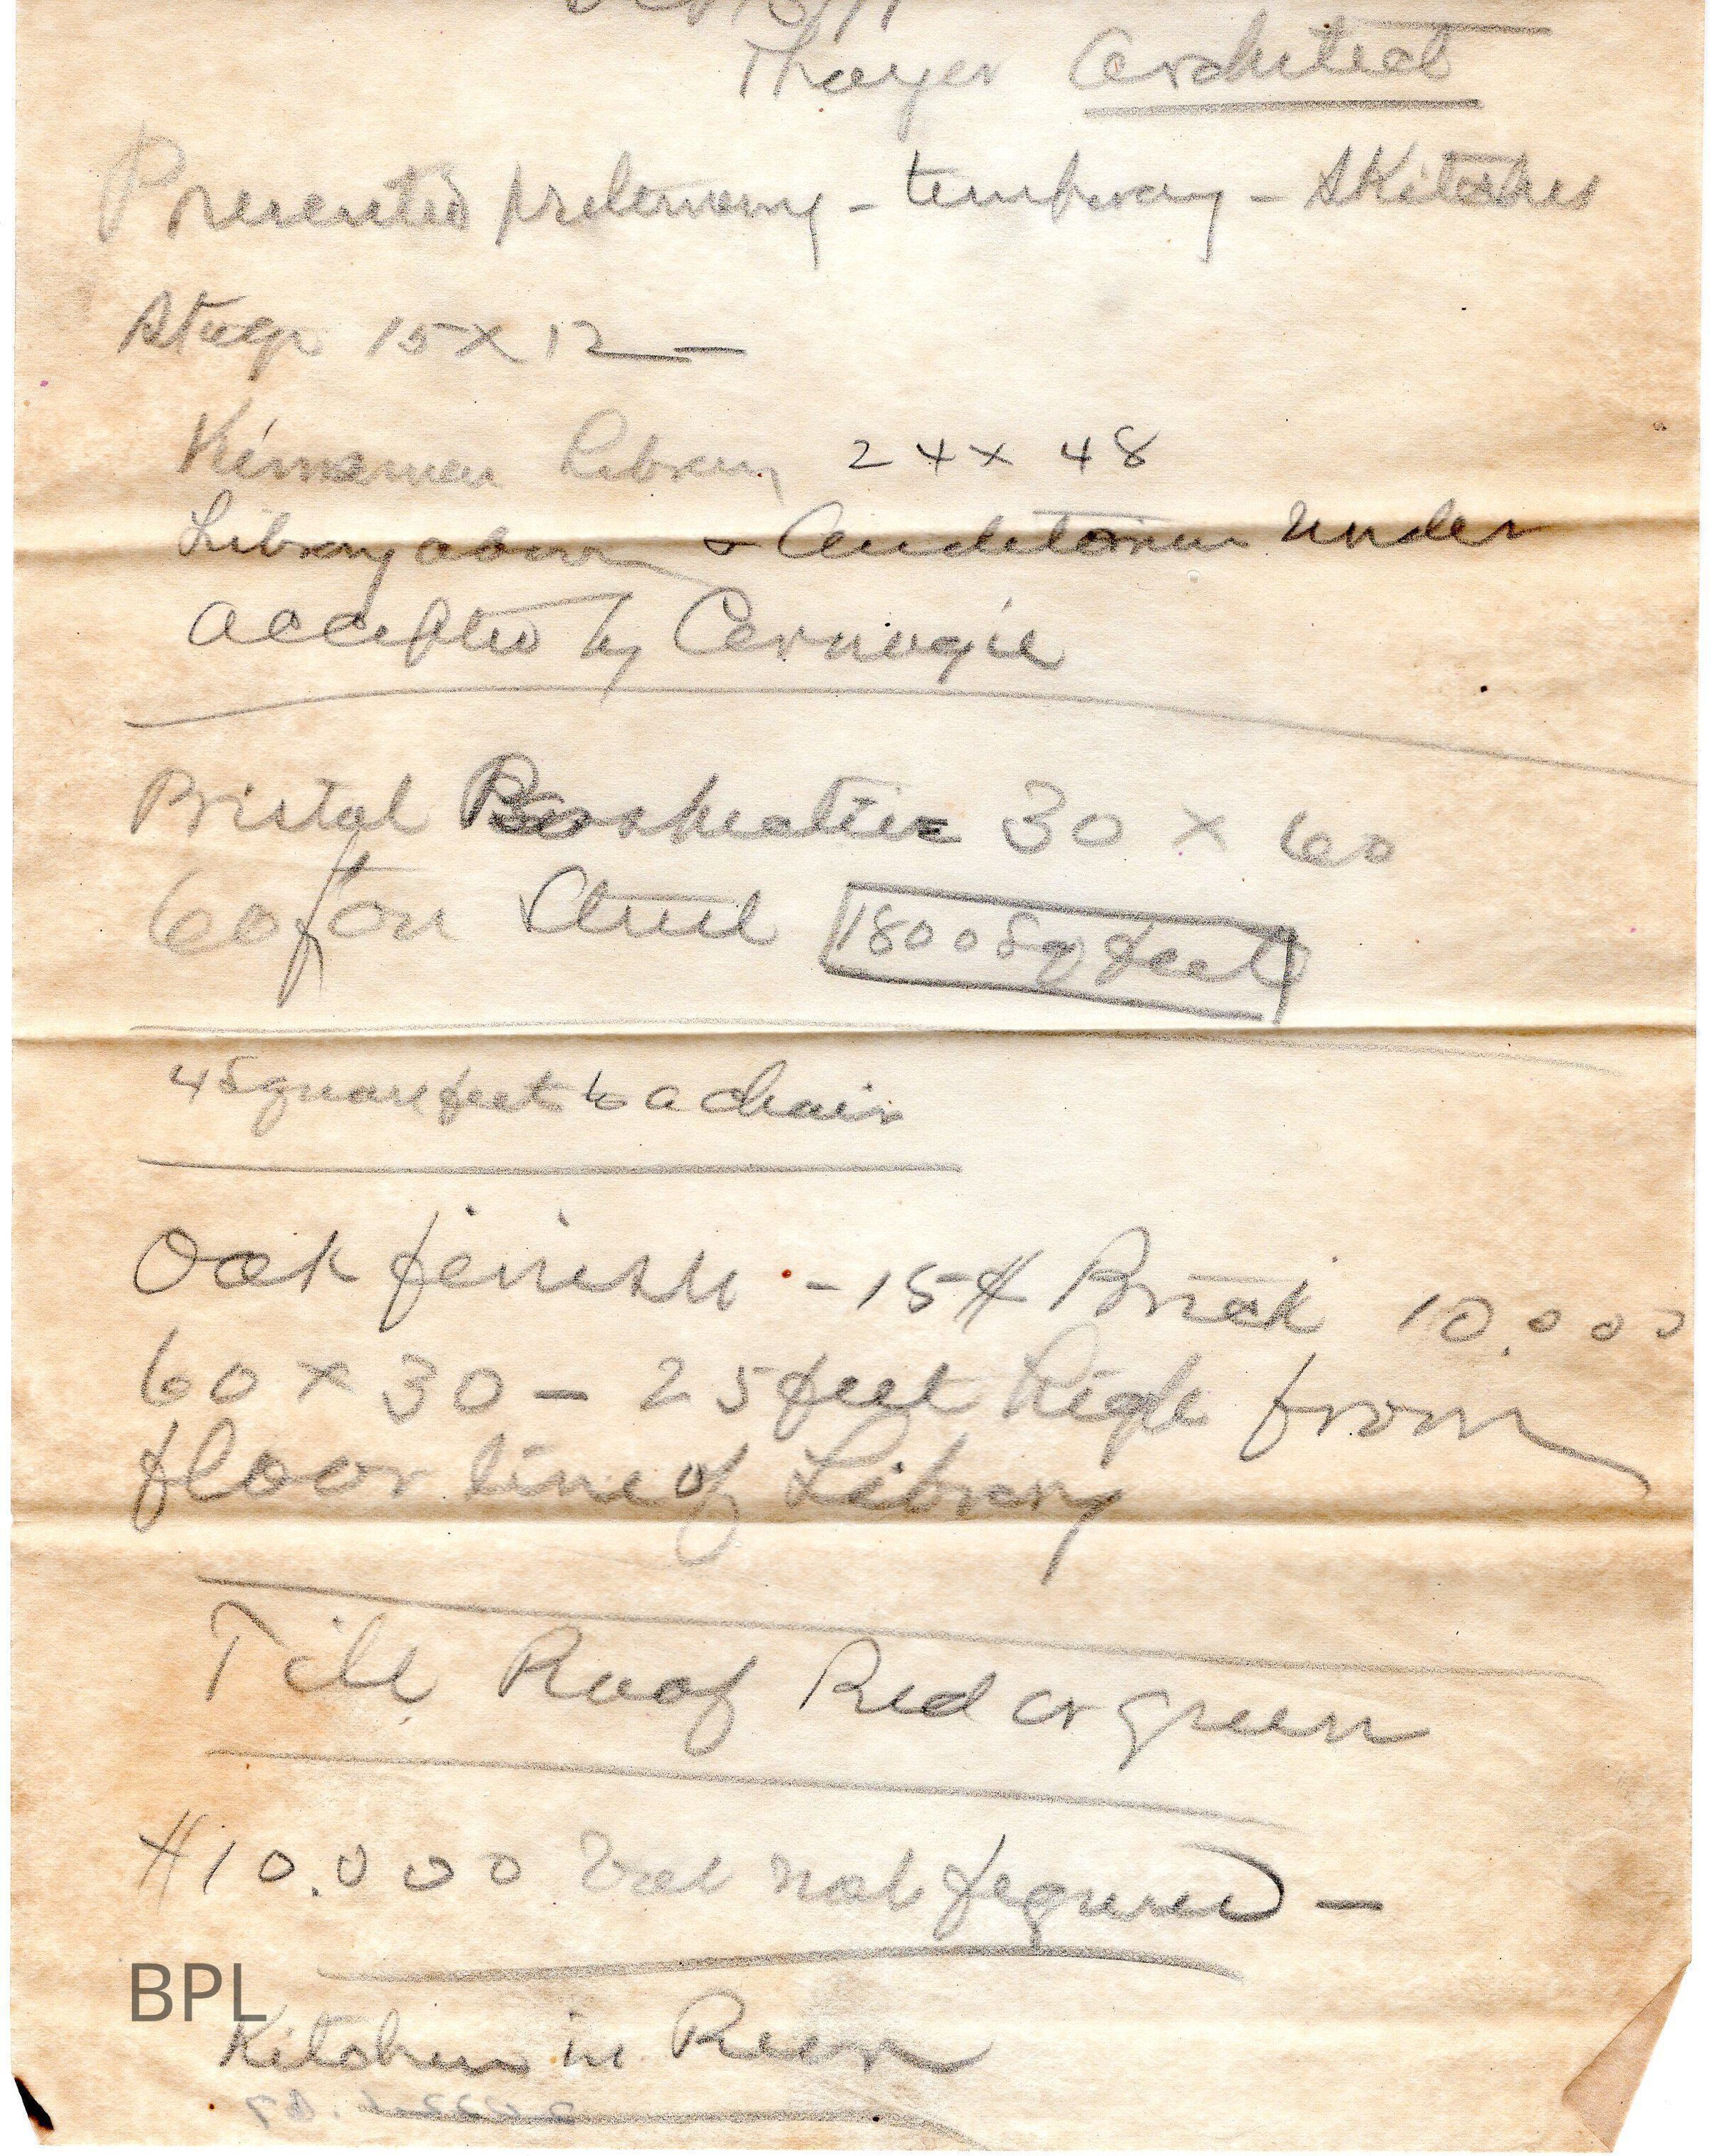 Thayer Architect
Presented prelemenary - temporary - Skitches
Stage 15 x 12 -
Kinsman Library 24 x 48
Library above & Auditorium under
accepted by Carnegie
Bristol 30 x 60
60 ft on Street 1800 Sq feet
4 Square feet to a chair
Oak finish - 15 # Brick 10.000
60 x 30 - 25 feet high from
floor line of Library
Tile Roof Red or green
#10.000 not figured -
BPL
Kitchen in Rear